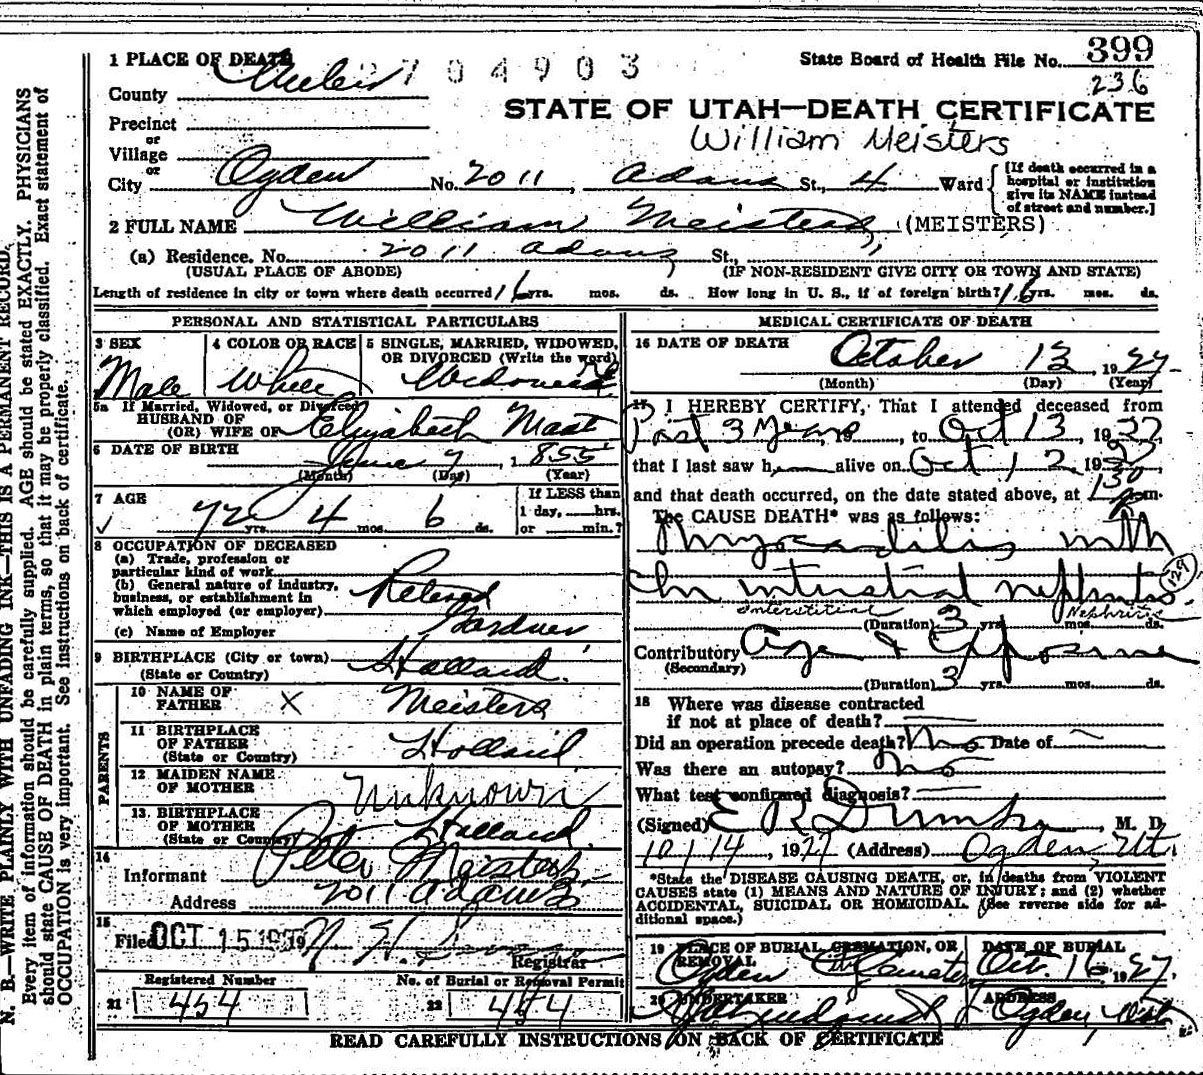 1 PLACE OF DEATH
2704903
State Board of Health File No. 399
236
County Weber
STATE OF UTAH—DEATH CERTIFICATE
William Meisters
Precinct
or
Village
or
City Ogden No. 2011 Adams St., 4 Ward
[If death occurred in a hospital or institution give its NAME instead of street and number.]
2 FULL NAME William Meisters (MEISTERS)
(a) Residence. No. 2011 Adams St.,
(USUAL PLACE OF ABODE) (IF NON-RESIDENT GIVE CITY OR TOWN AND STATE)
Length of residence in city or town where death occurred 16 yrs. mos. ds. How long in U. S., if of foreign birth? 16 yrs. mos. ds.
PERSONAL AND STATISTICAL PARTICULARS
3 SEX
Male
4 COLOR OR RACE
White
5 SINGLE, MARRIED, WIDOWED, OR DIVORCED (Write the word)
Widowed
5a If Married, Widowed, or Divorced
HUSBAND OF
(OR) WIFE OF Elizabeth Maat
6 DATE OF BIRTH June 7, 1855
(Month) (Day) (Year)
7 AGE
72 yrs. 4 mos. 6 ds.
If LESS than
1 day, hrs.
or min.?
8 OCCUPATION OF DECEASED
(a) Trade, profession or
particular kind of work
(b) General nature of industry,
business, or establishment in
which employed (or employer) Retired
Gardner
(c) Name of Employer
9 BIRTHPLACE (City or town)
(State or Country) Holland.
PARENTS
10 NAME OF
FATHER X Meisters
11 BIRTHPLACE
OF FATHER Holland
(State or Country)
12 MAIDEN NAME
OF MOTHER Unknown
13 BIRTHPLACE
OF MOTHER Holland.
(State or Country)
14
Informant Peter Meisters
Address 2011 Adams
15
Filed OCT 15 19
Registrar
Registered Number No. of Burial or Removal Permit
21 454 22 454
MEDICAL CERTIFICATE OF DEATH
16 DATE OF DEATH October 13, 1927
(Month) (Day) (Year)
17 I HEREBY CERTIFY, That I attended deceased from
Past 3 Years, 19, to Oct 13, 1927,
that I last saw h alive on Oct 12 1927
and that death occurred, on the date stated above, at 130 m.
The CAUSE DEATH* was as follows:
Myocarditis with
Chn intustial nephritis 129
Interstitial Nephritis
(Duration) 3 yrs. mos. ds.
Contributory Age & Exposure
(Secondary)
(Duration) 3 yrs. mos. ds.
18 Where was disease contracted
if not at place of death?
Did an operation precede death? No Date of
Was there an autopsy? No
What test confirmed diagnosis?
(Signed) E R Dumke, M. D.
10/14, 1927 (Address) Ogden, Ut.
*State the DISEASE CAUSING DEATH, or, in deaths from VIOLENT
CAUSES state (1) MEANS AND NATURE OF INJURY; and (2) whether
ACCIDENTAL, SUICIDAL OR HOMICIDAL. (See reverse side for ad-
ditional space.)
19 PLACE OF BURIAL, CREMATION, OR
REMOVAL
Ogden City Cemetery
DATE OF BURIAL
Oct. 16, 1927
20 UNDERTAKER
Lindquist
ADDRESS
Ogden, Utah
READ CAREFULLY INSTRUCTIONS ON BACK OF CERTIFICATE
N. B.—WRITE PLAINLY WITH UNFADING INK—THIS IS A PERMANENT RECORD.
Every item of information should be carefully supplied. AGE should be stated EXACTLY. PHYSICIANS
should state CAUSE OF DEATH in plain terms, so that it may be properly classified. Exact statement of
OCCUPATION is very important. See instructions on back of certificate.